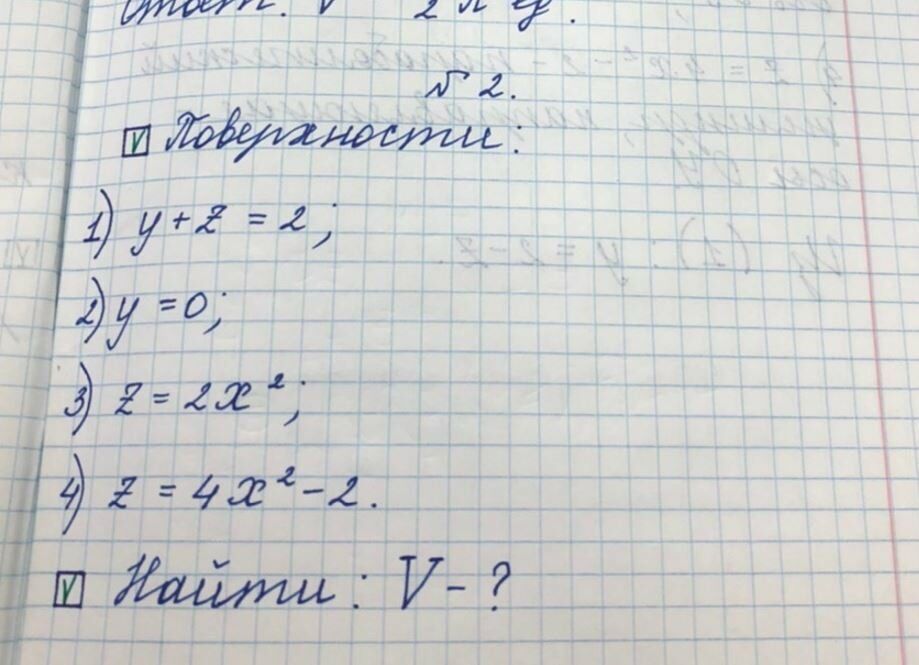 № 2.
Поверхности:
1) y + z = 2;
2) y = 0;
3) z = 2x²;
4) z = 4x² - 2.
Найти: V - ?